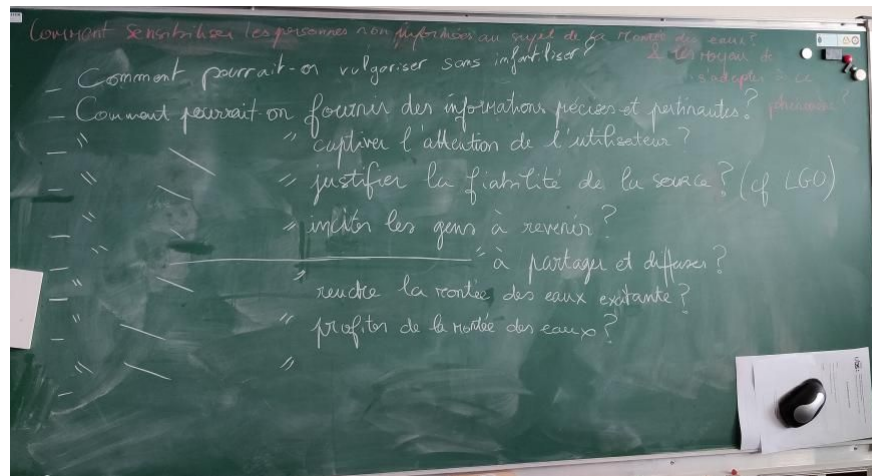 Comment sensibiliser les personnes non informées au sujet de la montée des eaux?
& les moyens de
s'adapter à ce
phénomène?
- Comment pourrait-on vulgariser sans infantiliser?
- Comment pourrait-on fournir des informations précises et pertinantes?
- " " captiver l'attention de l'utilisateur?
- " " justifier la fiabilité de la source? (cf LGO)
- " " inciter les gens à revenir?
- " " à partager et diffuser?
- " " rendre la montée des eaux exitante?
- " " profiter de la montée des eaux?
- " "